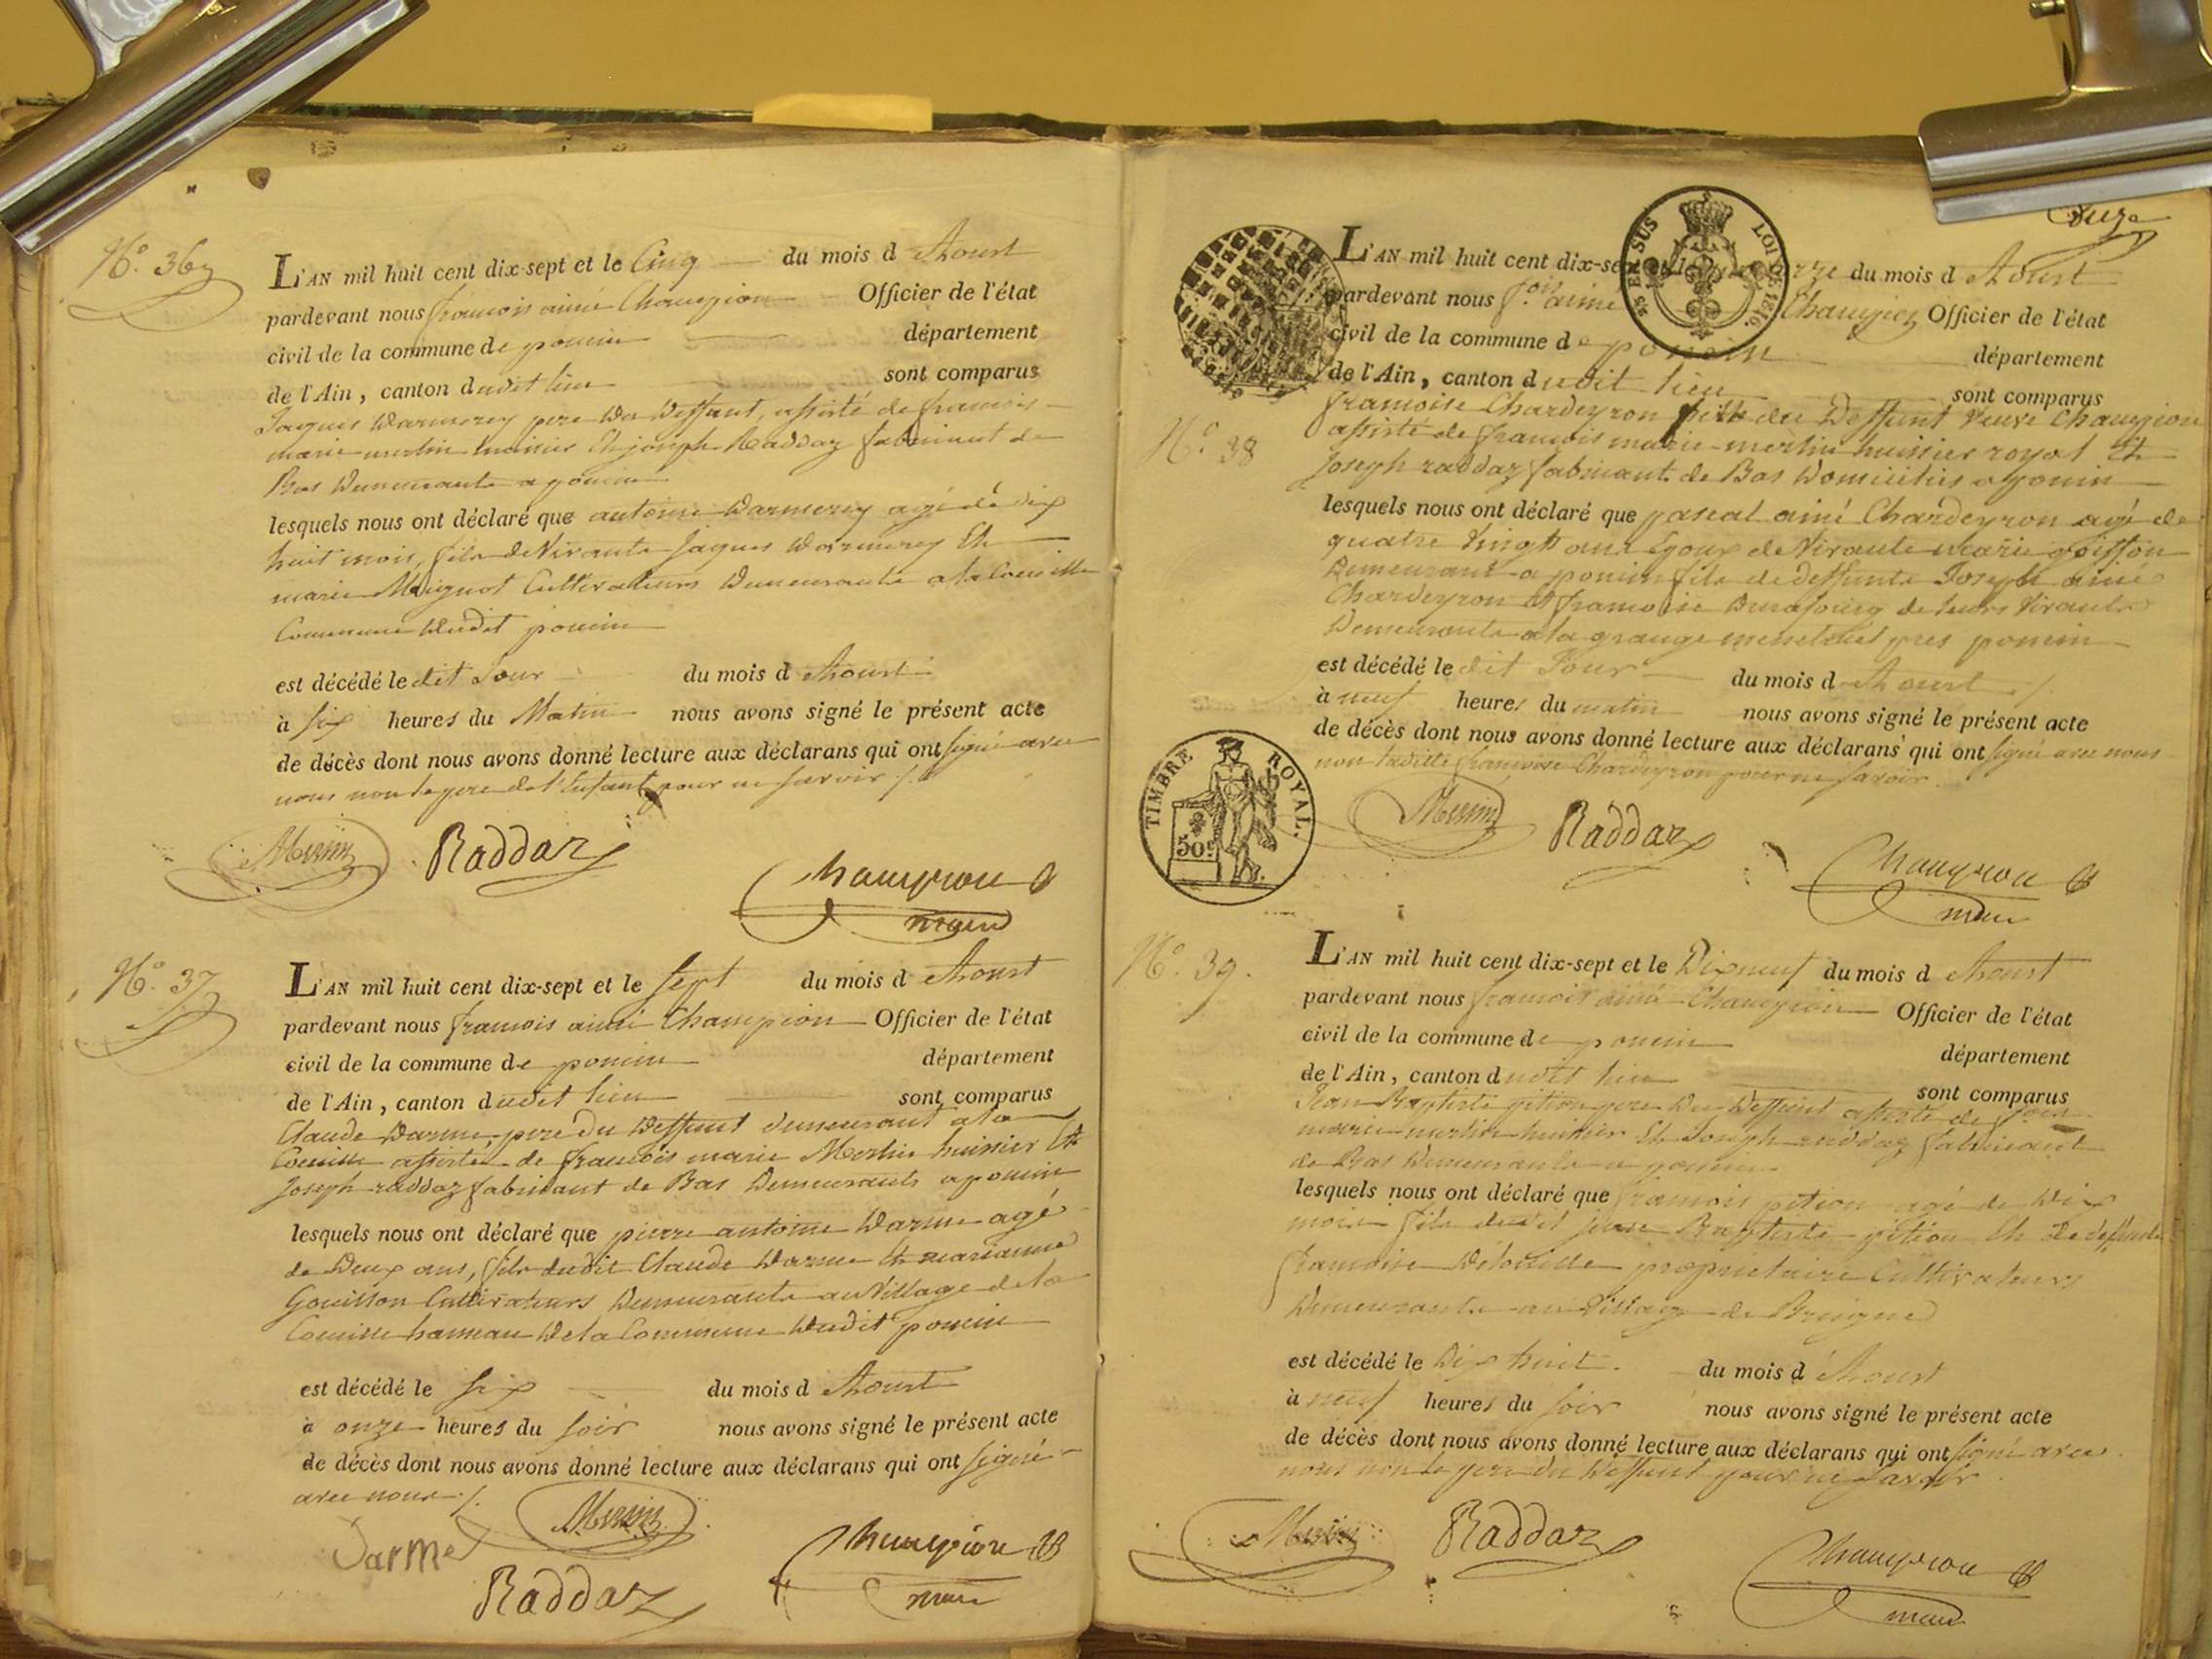 N.° 36
L'AN mil huit cent dix-sept et le Cinq du mois d Aoust
pardevant nous françois aimé Champion Officier de l'état
civil de la commune de poncin département
de l'Ain, canton dudit lieu sont comparus
Jaques Darmerey pere du deffunt, assisté de francois
marie merlin huissier Et joseph Raddaz fabriquant de
Bas Demeurants a poncin
lesquels nous ont déclaré que antoine Darmerey agé de dix
huit mois, fils de Vivants Jaques Darmerey Et
marie Cultivateurs Demeurants a la Coeuille
Commune dudit poncin
est décédé le dit Jour du mois d Aoust
à six heures du Matin nous avons signé le présent acte
de décès dont nous avons donné lecture aux déclarans qui ont signé avec
nous non le pere de l'Enfant pour ne savoir ./.
Merlin Raddaz
Champion
maire
N.° 37
L'AN mil huit cent dix-sept et le sept du mois d Aoust
pardevant nous francois aimé Champion Officier de l'état
civil de la commune de poncin département
de l'Ain, canton dudit lieu sont comparus
Claude Darme pere du deffunt demeurant a la
Coeuille assisté de francois marie Merlin huissier Et
Joseph raddaz fabricant de Bas Demeurants a poncin
lesquels nous ont déclaré que pierre antoine Darme agé
de Deux ans, fils dudit Claude Darme Et marianne
Gouisson Cultivateurs Demeurants au Village de la
Coeuille hameau De la Commune dudit poncin
est décédé le six du mois d Aoust
à onze heures du soir nous avons signé le présent acte
de décès dont nous avons donné lecture aux déclarans qui ont signé
avec nous ./.
Darme Merlin
Raddaz Champion
maire
onze
EN SUS LOI DE 1816.
L'AN mil huit cent dix-sept du mois d Aoust
pardevant nous f.ois aimé Champion Officier de l'état
civil de la commune de poncin département
de l'Ain, canton dudit lieu sont comparus
N.° 38
francoise Chardeyron du Deffunt Veuve Champion
assisté de francois marie merlin huissier royal Et
Joseph raddaz fabricant de Bas Domiciliés a poncin
lesquels nous ont déclaré que pascal aimé Chardeyron agé de
quatre Vingtt ans Epoux de Vivante marie goiffon
Demeurant a poncin fils de deffunts Joseph aimé
Chardeyron et francoise de leurs Vivants
Demeurants a la grange pres poncin
est décédé le dit Jour du mois d Aoust ./
à neuf heures du matin nous avons signé le présent acte
de décès dont nous avons donné lecture aux déclarans qui ont signé avec nous
non laditte francoise Chardeyron pour ne savoir
TIMBRE ROYAL.
50c
Merlin Raddaz
Champion
maire
N.° 39.
L'AN mil huit cent dix-sept et le Dixneuf du mois d Aoust
pardevant nous francois aimé Champion Officier de l'état
civil de la commune de poncin département
de l'Ain, canton dudit lieu sont comparus
Jean Baptiste pition pere Du Deffunt assisté de f.ois
marie merlin huissier Et Joseph raddaz fabricant
de Bas Demeurants a poncin
lesquels nous ont déclaré que francois pition agé de Dix
mois fils dudit jean Baptiste pition Et de deffunte
francoise proprietaire Cultivateurs
Demeurants au Village de
est décédé le Dix huit. du mois d Aoust
à neuf heures du soir nous avons signé le présent acte
de décès dont nous avons donné lecture aux déclarans qui ont signé avec
nous non le pere du Deffunt pour ne savoir
Merlin Raddaz
Champion
maire